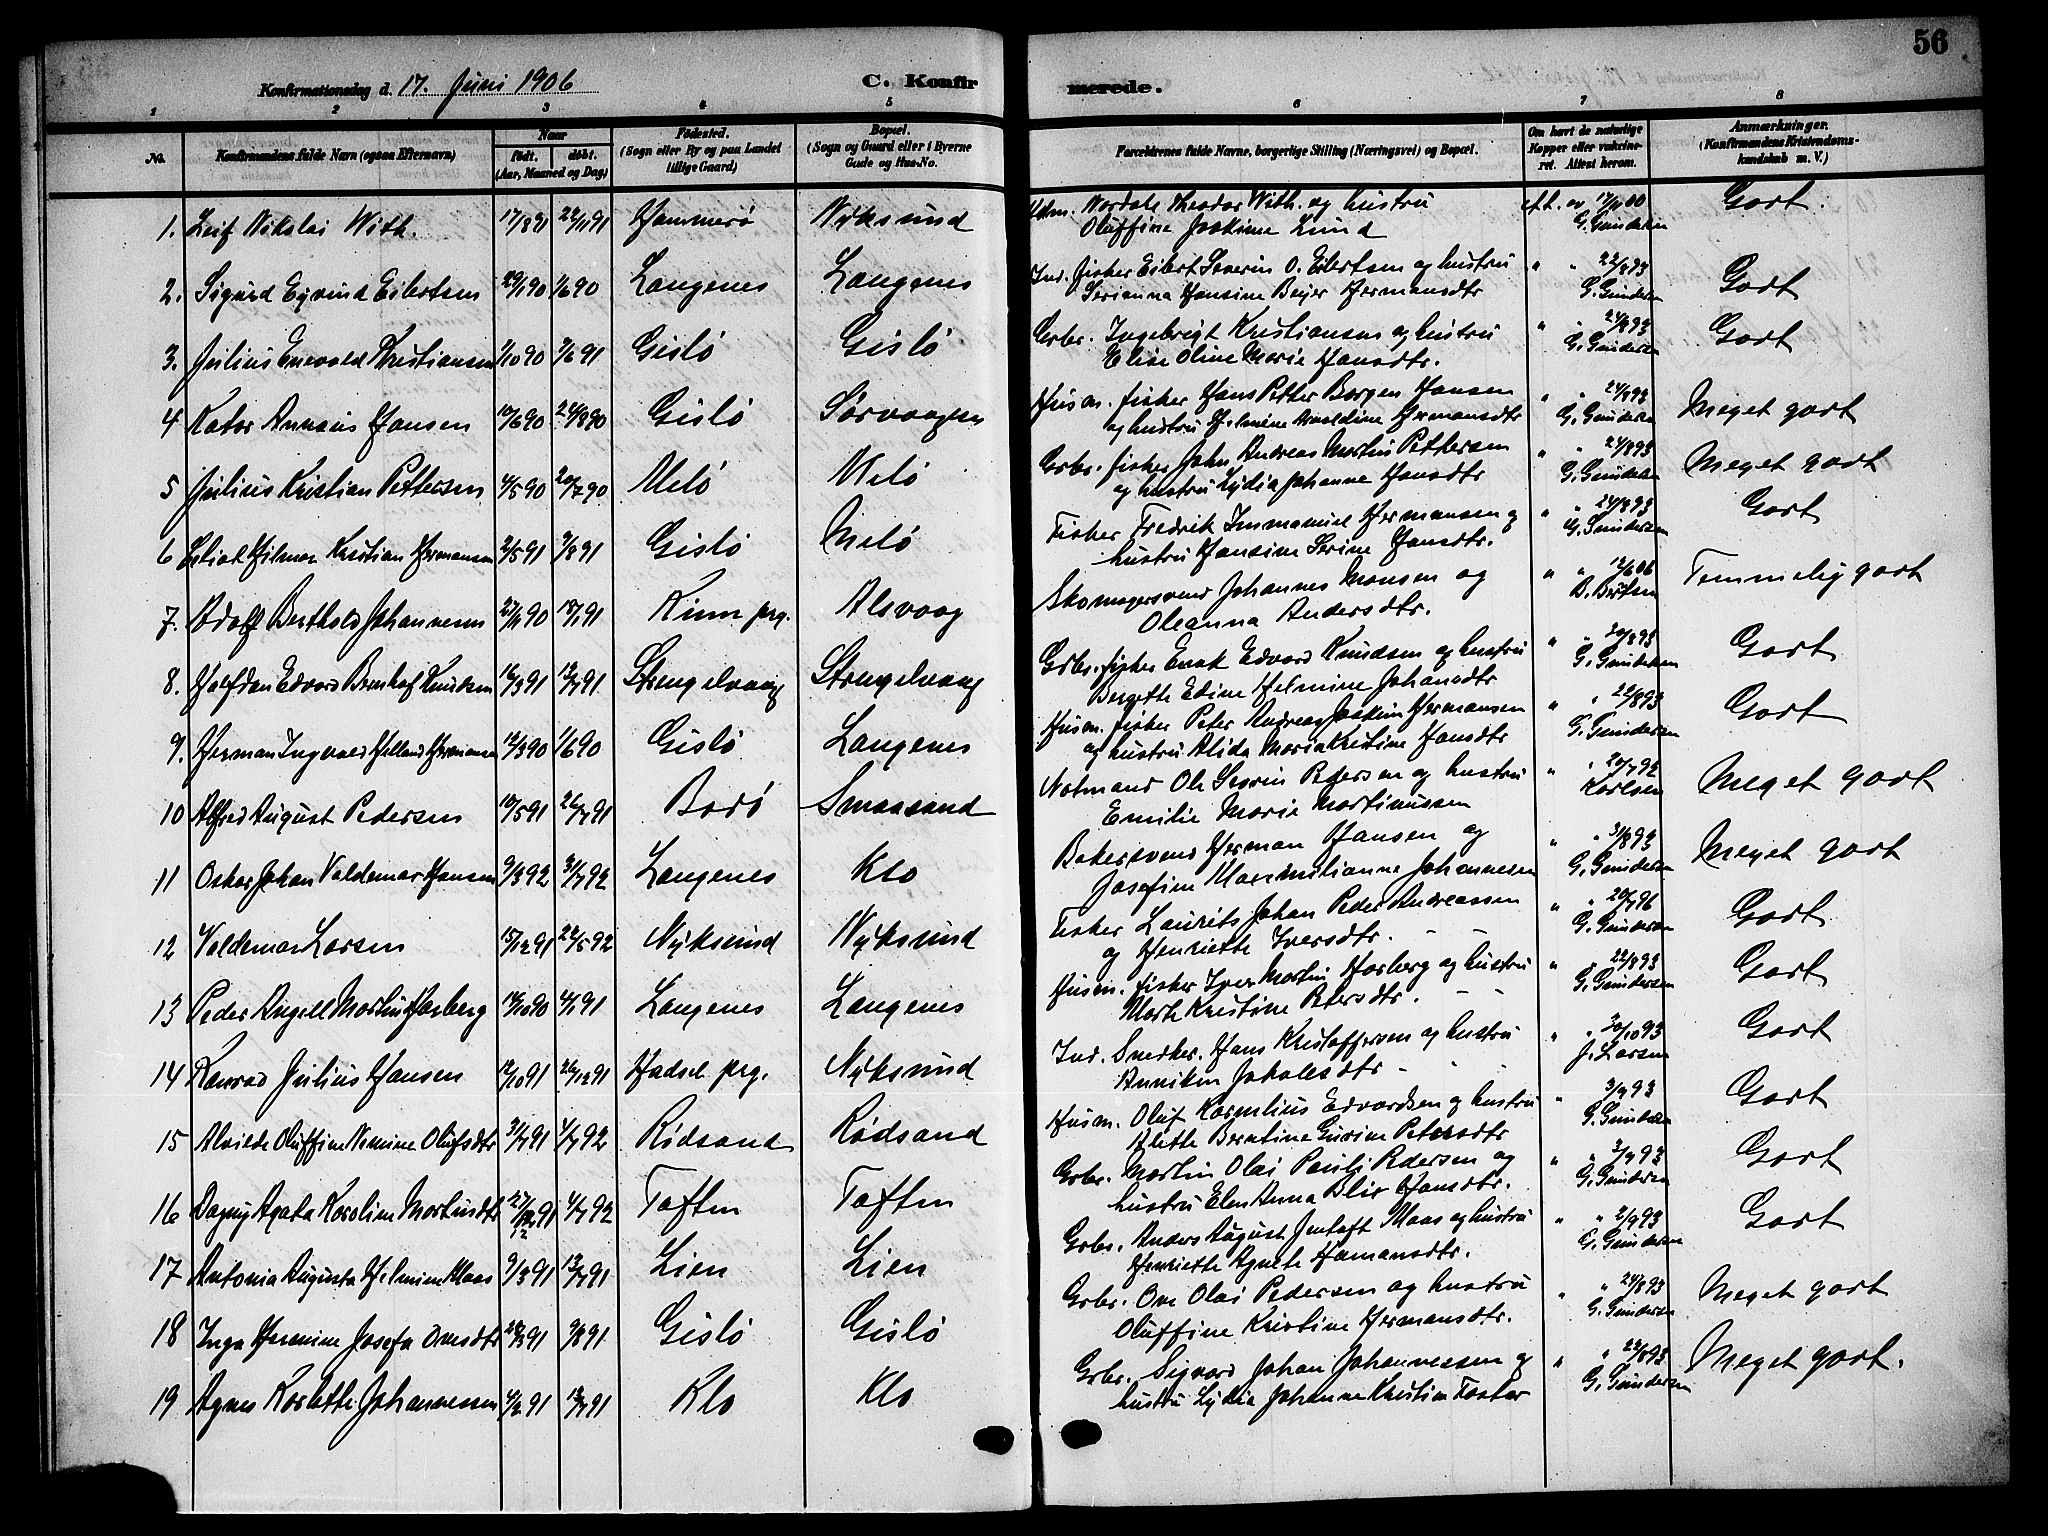 56
Konfirmationsdag d. 17. Juni 1906 C. Konfirmerede.
1 2 3 4 5 6 7 8
No. Konfirmandens fulde Navn (ogsaa Efternavn) Naar født. døbt. (Aar, Maaned og Dag) Fødested. (Sogn eller By og paa Landet tillige Gaard) Bopæl. (Sogn og Gaard eller i Byerne Gade og Hus-No.
Forældrenes fulde Navne, borgerlige Stilling (Næringsvei) og Bopæl. Om havt de naturlige Kopper eller vakcineret. Attest herom. Anmærkninger. (Konfirmandens Kristendomskundskab m. V.)
1. Leif Nikolai With. 17/8 91 22/11 91 Hammerö Nyksund
Nordahl Theodor With. og hustru
Oluffine Joakime Lund
G. Gundersen Godt.
2. Sigurd Eyvind Eilertsen 29/1 90 1/6 90 Langenes Langenes
Ind. fisker Eilert Severin O. Eilertsen og hustru
Serianna Hansine Beyer Hermansdtr
" " 22/8 93 G. Gundersen Godt
3. Julius Enevald Kristiansen 7/10 90 7/6 91 Gislö Gislö
Grbr. Ingebrigt Kristiansen og hustru
Elise Oline Marie Hansdtr.
" " 24/8 93 G. Gundersen Godt
4 Kator Annæus Hansen 10/6 90 24/8 90 Gislö Sørvaagen
Husm. fisker Hans Petter Borgen Hansen
og hustru Helmine Arveldine Hermansdtr
" " 24/8 93 G. Gundersen Meget godt
5 Julius Kristian Pettersen 4/5 90 20/7 90 Melö Melö
Grbr. fisker John Andreas Martin Pettersen
og hustru Lydia Johanne Hansdtr
" " 24/8 93 G. Gundersen Meget godt
6 Hilmar Kristian Hermansen 2/5 91 9/8 91 Gislö Melö
Fisker Fredrik Immanuel Hermansen og
hustru Hansine Serine Hansdtr.
" " 24/8 93 G. Gundersen Godt
7. Adolf Berthold Johannesen 21/11 90 18/1 91 Kinn prg. Alsvaag
Skomagersvend Johannes Monsen og
Oleanna Andersdtr.
" " 12/6 06 Temmelig godt
8. Halfdan Edvard Bernhof Knudsen 16/3 91 12/7 91 Strengelvaag Strengelvaag
Grbr. fisker Enok Edvard Knudsen og hustru
Bergette Edine Helmine Johansdtr
" " 30/8 93 G. Gundersen Godt
9. Herman Ingvald Helland Hermansen 12/3 90 1/6 90 Gislö Langenes
Husm. fisker Peter Andreas Joakim Hermansen
og hustru Alida Maria Kristine Hansdtr
" " 22/8 93 G. Gundersen Godt
10 Alfred August Pedersen 10/5 91 26/7 91 Barö Smaasund
Notmand Ole Severin Pedersen og hustru
Emilie Marie Martinussen
" " 20/7 92 Karlsen Meget godt
11 Oskar Johan Valdemar Hansen 9/3 92 31/7 92 Langenes Klo
Bakersvend Herman Hansen og
Josefine Maxmilianne Johannesen
" " 31/8 93 G. Gundersen Meget godt
12 Valdemar Larsen 15/12 91 22/5 92 Nyksund Nyksund
Fisker Laurits Johan Peder Andreassen
og Henriette Iversdtr.
" " 20/7 96 G. Gundersen Godt
13 Peder Angell Martin Harberg 14/10 90 4/1 91 Langenes Langenes
Husm. fisker Iver Martin Harberg og hustru
Marte Kristine Petersdtr.
" " 22/8 93 G. Gundersen Godt
14 Konrad Julius Hansen 12/10 91 26/12 91 Hadsel prg. Nyksund
Ind. Snedker. Hans Kristoffersen og hustru
Anniken Jakobsdtr
" " 30/10 93 J. Larsen Godt
15 Alvilde Oluffine Nemine Olufsdtr 31/7 91 4/7 92 Rödsand Rödsand
Husm. Oluf Kornelius Edvardsen og hustru
Alette Berntine Gurine Petersdtr
" 3/9 93 G. Gundersen Godt
16 Dagny Agata Karoline Martinsdtr 27/12 91 4/7 92 Toften Toften
Grbr. Martin Olai Pauli Pedersen og
hustru Elen Anna Blix Hansdtr.
" " 3/9 93 G. Gundersen Godt
17 Antonia Augusta Helmine Maas 9/3 91 12/7 91 Lien Lien
Grbr. Anders August Jentoft Maas og hustru
Henriette Agnete Hemansdtr.
" " 2/9 93 G. Gundersen Godt
18 Inga Herenine Josefa Ovesdtr 9/8 91 Gislö Gislö
Grbr. Ove Olai Pedersen og hustru
Oluffine Kristine Hermansdtr.
" " 24/8 93 G. Gundersen Meget godt
19 Agnes Karlotte Johannessen 4/2 91 12/7 91 Klo Klo
Grbr. Sigvard Johan Johannessen og
hustru Lydia Johanne Kristine Foster
" " 23/8 93 G. Gundersen Meget godt.